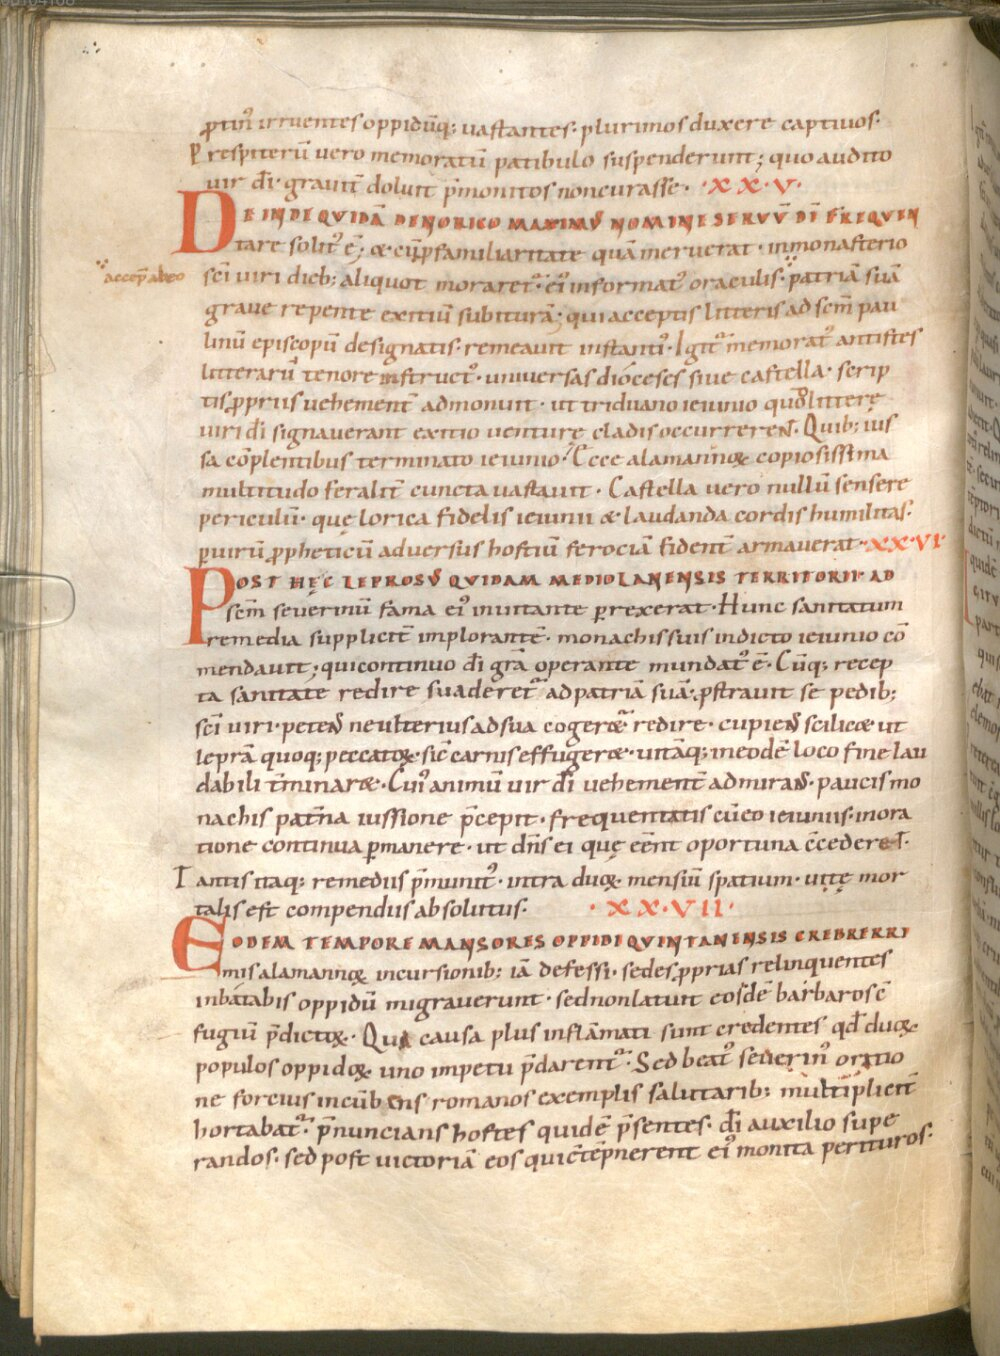 ꝓtin᷒ irruentes oppidūq; uastantes· plurimos duxere captiuos·
Prespiterū vero memoratū patibulo suspenderunt; quo audito
uir dī· grauit̄ doluit p̄monitos noncurasse· ·XX·V·
DEINDE QVIDĀ DENORICO MAXIMV᷒ NOMINE SERVV̄ DĪ FREQUEN
tare solit᷒ ē; & eiꝰꝑfamiliaritate quā meruerat· inmonasterio
acceꝑ̄ abeo
scī uiri dieb; aliquot moraret᷒· ei᷒ informat᷒ oraculis· patriā suā
graue repente exitiū subiturā; qui acceptis litteris ad scm̄ pau
linū episcopū designatis· remeauit instanti᷒· Igit᷒ memorat᷒ antistes
litterarū tenore instruct᷒· uniuersas dioceses siue castella· scrip
tis ꝓpriis uehement̄ admonuit· ut triduano ieiunio quod litterę
uiri dī signauerant exitio venturę cladis occurreren̄· Quib; ius
sa cōplentibus terminato ieiunio· Ecce alamannoꝝ copiosissima
multitudo feralit̄ cuncta uastauit· Castella vero nullū sensere
periculū· quę lorica fidelis ieiunii & laudanda cordis humilitas·
ꝑ uirū ꝓpheticū aduersus hostiū ferociā fident̄ armauerat· ·XXVI·
POST HĘC LEPROSV᷒ QVIDAM MEDIOLANENSIS TERRITORII· AD
scm̄ seuerinū fama ei᷒ inuitante ꝑrexerat· Hunc sanitatum
remedia supplicit̄ implorantē· monachis suis indicto ieiunio cō
mendauit; qui continuo dī gr̄a operante mundat᷒ ē· Cūq; recep
ta sanitate redire suaderet᷒ ad patriā suā· ꝓstrauit se pedib;
scī uiri· peten̄ ne ulterius ad sua cogeret᷒ redire· cupien̄ scilic& ut
leprā quoq; peccatoꝝ· sic̄ carnis effuger&· uitāq; ineodē loco fine lau
dabili t̄minar&· Cui᷒ animū uir dī uehement̄ admiran̄· paucis mo
nachis pat̄na iussione p̄cepit· frequentatis cū eo ieiuniis· inora
tione continua ꝑmanere· ut dn̄s ei quę eēnt oportuna c̄cederet·
Tantis itaq; remediis p̄munit᷒· intra duoꝝ mensiū spatium· uitę mor
talis est compendiis absolutus· ·XX·VII·
EODEM TEMPORE MANSORES OPPIDI QVINTANENSIS CREBERRI
mis alamannoꝝ incursionib; iā defessi· sedes ꝓprias relinquentes
inbatabis oppidū migrauerunt· sednonlatuit eosdē barbaros c̄
fugiū p̄dictoꝝ· Qua causa plus inflāmati sunt credentes qd̄ duoꝝ
populos oppidoꝝ uno impetu p̄darent᷒· Sed beat᷒ seuerin᷒ oratio
ne forcius incūbens romanos exemplis salutarib; multiplicit̄
hortabat᷒· p̄nuncians hostes quidē p̄sentes· dī auxilio supe
randos· sed post uictoriā eos qui c̄tēpnerent ei᷒ monita perituros·